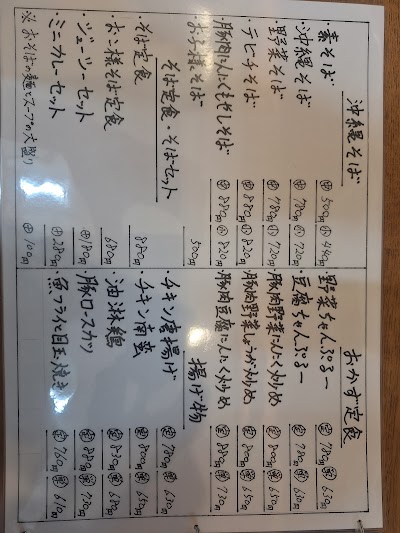 沖縄そば
・素そば ㊥500円 ㊙440円
・沖縄そば 780円 720円
・野菜そば 780円 720円
・テビチそば 880円 820円
・豚肉にんにくもやしそば 880円 820円
・お子様そば 500円
そば定食・そばセット
・そば定食 880円
・お子様そば定食 680円
・ジューシーセット 180円
・ミニカレーセット 280円
※おそばの麺とスープの大盛り 100円
おかず定食
・野菜ちゃんぷるー 780円 630円
・豆腐ちゃんぷるー 780円 630円
・豚肉野菜にんにく炒め 800円 650円
・豚肉野菜しょうが炒め 800円 650円
・豚肉豆腐にんにく炒め 880円 730円
揚げ物
・チキン唐揚げ 780円 630円
・チキン南蛮 800円 650円
・油淋鶏 830円 680円
・豚ロースカツ 880円 730円
・魚フライと目玉焼き 760円 610円